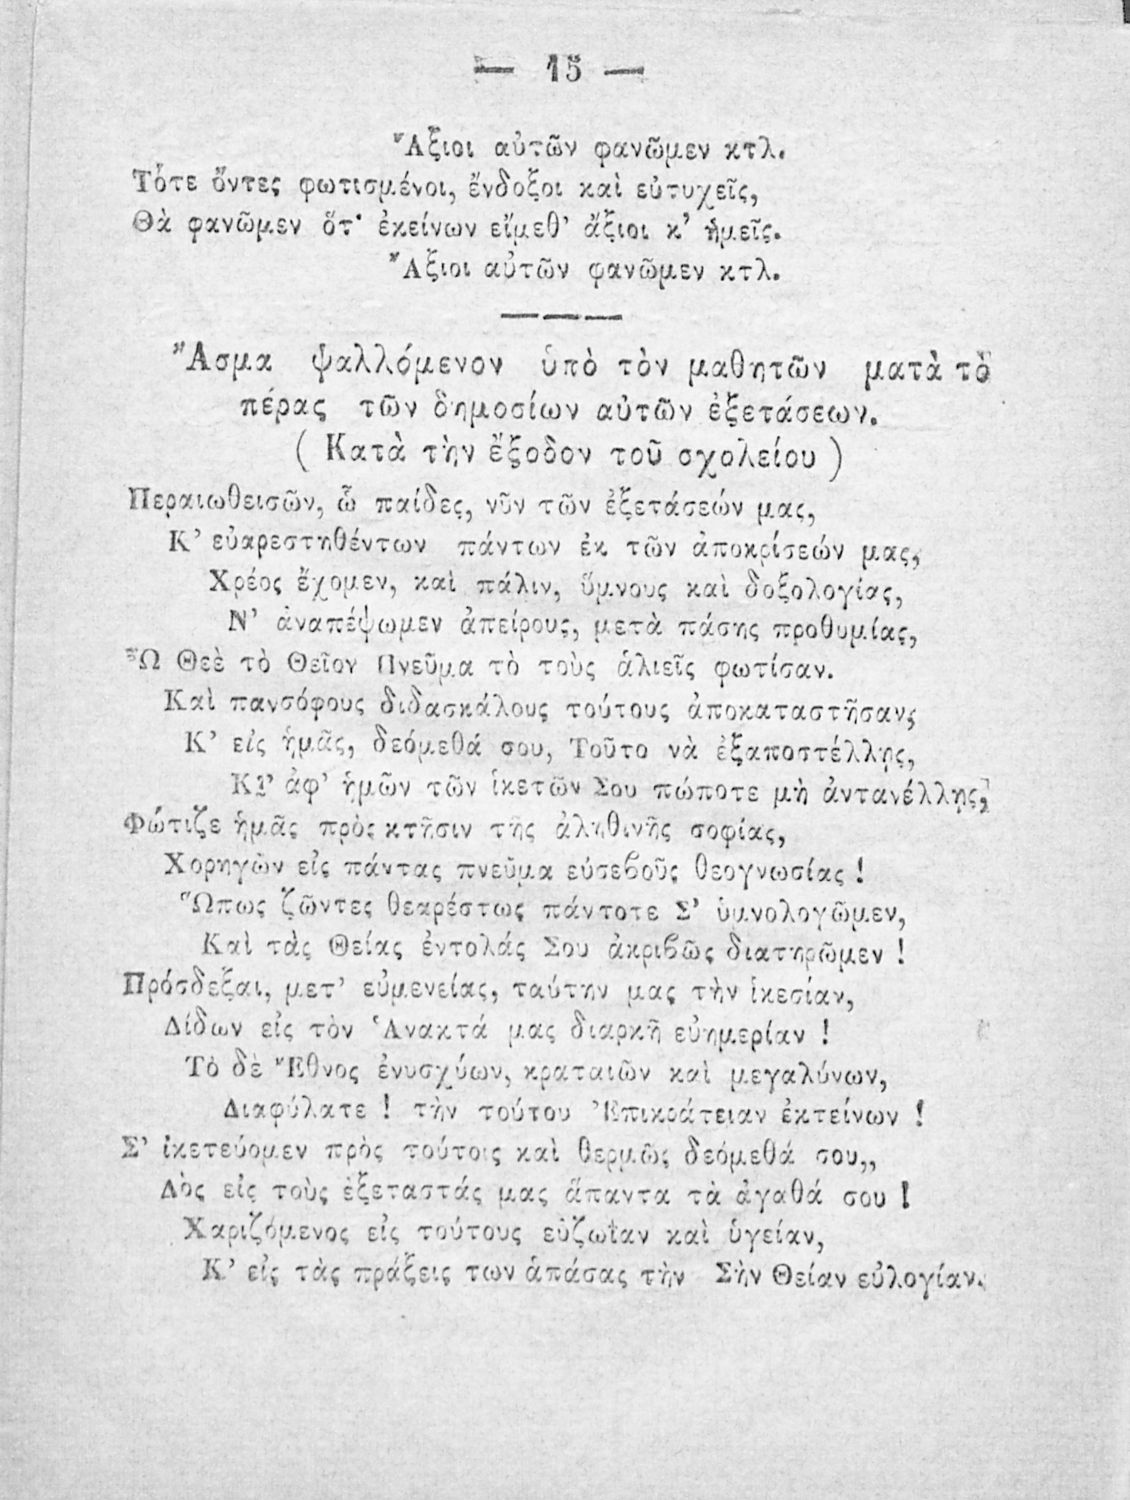 — 15 —
Ἄξιοι αὐτῶν φανῶμεν κτλ.
Τότε ὄντες φωτισμένοι, ἔνδοξοι καὶ εὐτυχεῖς,
Θὰ φανῶμεν ὅτ' ἐκείνων εἴμεθ' ἄξιοι κ' ἡμεῖς.
Ἄξιοι αὐτῶν φανῶμεν κτλ.
Ἄσμα ψαλλόμενον ὑπὸ τὸν μαθητῶν ματὰ τὸ
πέρας τῶν δημοσίων αὐτῶν ἐξετάσεων.
( Κατὰ τὴν ἔξοδον τοῦ σχολείου )
Περαιωθεισῶν, ὦ παίδες, νῦν τῶν ἐξετάσεών μας,
Κ' εὐαρεστηθέντων πάντων ἐκ τῶν ἀποκρίσεών μας,
Χρέος ἔχομεν, καὶ πάλιν, ὕμνους καὶ δοξολογίας,
Ν' ἀναπέψωμεν ἀπείρους, μετὰ πάσης προθυμίας,
Ὦ Θεὲ τὸ Θεῖον Πνεῦμα τὸ τοὺς ἁλιεῖς φωτίσαν.
Καὶ πανσόφους διδασκάλους τούτους ἀποκαταστῆσαν,
Κ' εἰς ἡμᾶς, δεόμεθά σου, Τοῦτο νὰ ἐξαποστέλλῃς,
ΚΙ' ἀφ' ἡμῶν τῶν ἱκετῶν Σου πώποτε μὴ ἀντανέλλῃς,
Φώτιζε ἡμᾶς πρὸς κτῆσιν τῆς ἀληθινῆς σοφίας,
Χορηγῶν εἰς πάντας πνεῦμα εὐσεβοῦς θεογνωσίας !
Ὅπως ζῶντες θεαρέστως πάντοτε Σ' ὑμνολογῶμεν,
Καὶ τὰς Θείας ἐντολάς Σου ἀκριβῶς διατηρῶμεν !
Πρόσδεξαι, μετ' εὐμενείας, ταύτην μας τὴν ἱκεσίαν,
Δίδων εἰς τὸν Ἄνακτά μας διαρκῆ εὐημερίαν !
Τὸ δὲ Ἔθνος ἐνισχύων, κραταιῶν καὶ μεγαλύνων,
Διαφύλατε ! τὴν τούτου Ἐπικράτειαν ἐκτείνων !
Σ' ἱκετεύομεν πρὸς τούτοις καὶ θερμῶς δεόμεθά σου,,
Δὸς εἰς τοὺς ἐξεταστάς μας ἅπαντα τὰ ἀγαθά σου !
Χαριζόμενος εἰς τούτους εὐζωΐαν καὶ ὑγείαν,
Κ' εἰς τὰς πράξεις των ἁπάσας τὴν Σὴν Θείαν εὐλογίαν.